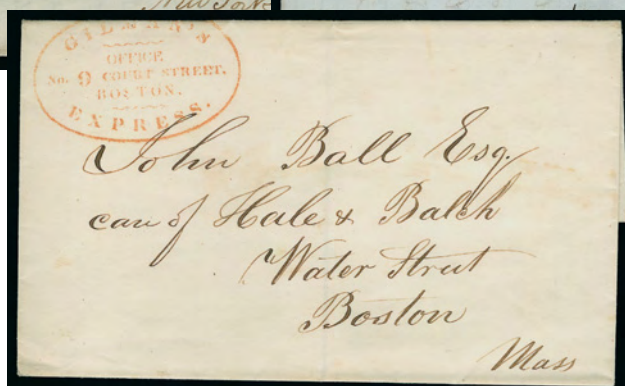 New York
GILMAN'S
OFFICE
No. 9 COURT STREET.
BOSTON.
EXPRESS.
John Ball Esq.
care of Hale & Balch
Water Street
Boston
Mass